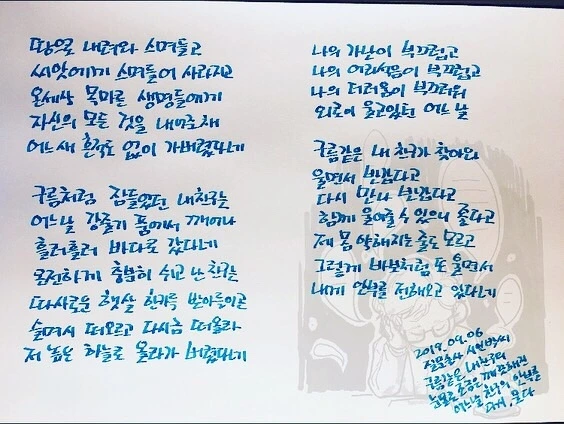 땅으로 내려와 스며들고
씨앗에게 스며들어 사라지고
온세상 목마른 생명들에게
자신의 모든 것을 내어준채
어느새 흔적도 없이 가버렸다네
구름처럼 잠들었던 내친구는
어느날 강줄기 품에서 깨어나
흘러흘러 바다로 갔다네
온전하게 충분히 쉬고 난 친구는
따사로운 햇살 한가득 받아들이곤
슬며서 떠오르고 다시금 떠올라
저 높은 하늘로 올라가 버렸다네
나의 가난이 부끄럽고
나의 어리석음이 부끄럽고
나의 더러움이 부끄러워
외로이 울고있던 어느 날
구름같은 내 친구가 찾아와
울면서 반갑다고
다시 만나 반갑다고
함께 울어줄 수 있으니 좋다고
제 몸 약해지는 줄도 모르고
그렇게 바보처럼 또 울면서
내게 안부를 전해오고 있다네
2019.09.06
구름같은 내친구의
어느날 친구의 안부를